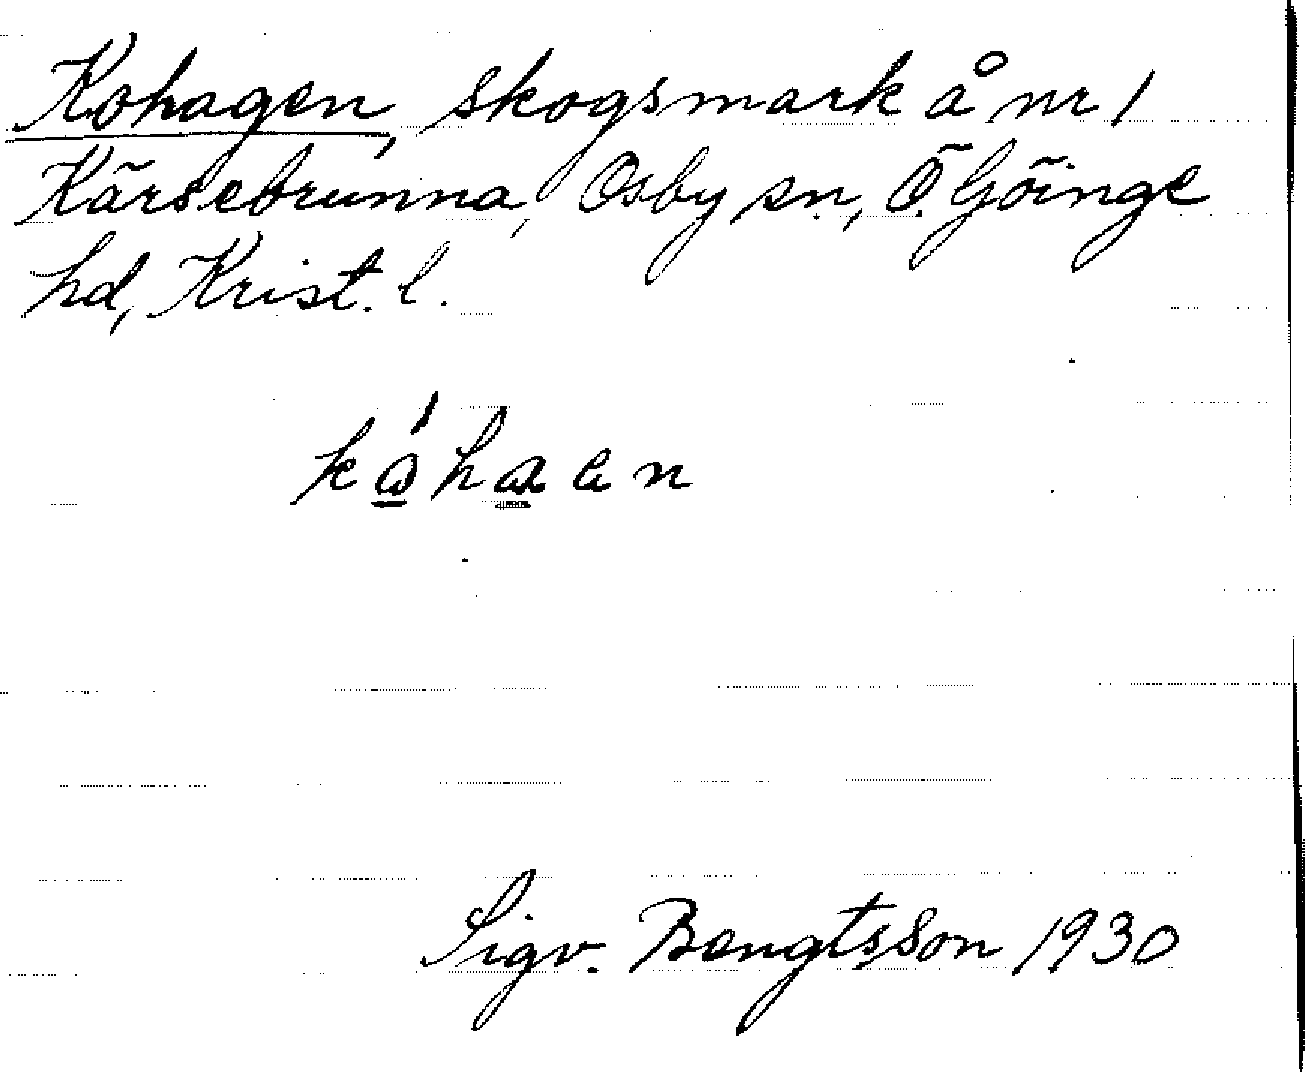 Kohagen, skogsmark å nr 1
Kärsebrunna, Osby sn, Ö. Göinge
hd, Krist. l.
kóhaen
Sigv. Bengtsson 1930